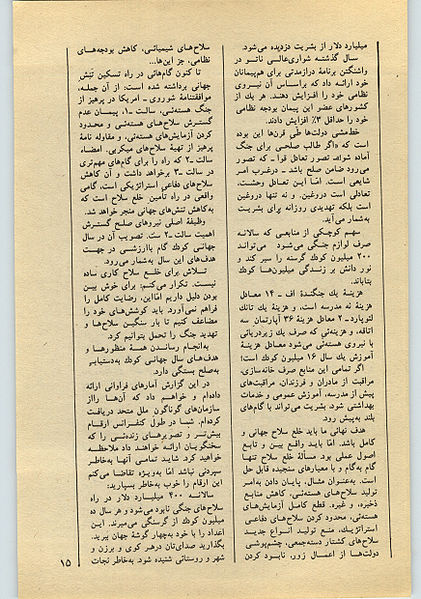 میلیارد دلار از بشریت دزدیده می‌شود.
سال گذشته شورای‌عالی ناتو در
واشنگتن برنامهٔ درازمدتی برای هم‌پیمانان
خود ارائه داد که براساس آن نیروی
نظامی خود را افزایش دهند. هر یك از
کشورهای عضو این پیمان بودجه نظامی
خود را حداقل ۳٪ افزایش دادند.
خط‌مشی دولت‌ها طی قرن‌ها این بوده
است که «اگر طالب صلحی برای جنگ
آماده شو». تصور تعادل قوا – که تصور
می‌رود ضامن صلح باشد – درغرب امر
شایعی است. امّا این تعادل وحشت،
تعادلی است دروغین. و نه تنها دروغین
است بلکه تهدیدی روزانه برای بشریت
به‌شمار می‌آید.
سهم کوچکی از منابعی که سالانه
صرف لوازم جنگی می‌شود می‌تواند
۲۰۰ میلیون کودك گرسنه را سیر کند و
نور دانش بر زندگی میلیون‌ها کودك
بتاباند.
هزینهٔ یك جنگندهٔ اف – ۱۴ معادل
هزینهٔ نه مدرسه است، و هزینهٔ یك تانك
لئوپارد–۲ معادل هزینهٔ ۳۶ آپارتمان سه
اتاقه، و هزینه‌ئی که صرف یك زیردریائی
با نیروی هسته‌ئی می‌شود معادل هزینهٔ
آموزش یك سال ۱۶ میلیون کودك است!
اگر تمامی این منابع صرف خانه‌سازی،
مراقبت از مادران و فرزندان، مراقبت‌های
پیش از مدرسه، آموزش عمومی و خدمات
بهداشتی شود، بشریت می‌تواند با گام‌های
بلند به‌پیش رود.
هدف نهائی ما باید خلع سلاح جهانی و
کامل باشد. امّا باید واقع بین و تابع
اصول عملی بود. مسألهٔ خلع سلاح تنها
گام به‌گام و با معیارهای سنجیده قابل حل
است. به‌عنوان مثال، پایان دادن به‌امر
تولید سلاح‌های هسته‌ئی، کاهش منابع
ذخیره، و غیره. قطع کامل آزمایش‌های
هسته‌ئی، محدود کردن سلاح‌های دفاعی
استراتژیك، منع تولید انواع جدید
سلاح‌های کشتار دسته‌جمعی، چشم‌پوشی
دولت‌ها از اعمال زور، نابود کردن
سلاح‌های شیمیائی، کاهش بودجه‌های
نظامی، جز این‌ها...
تا کنون گام‌هائی در راه تسکین تنش
جهانی برداشته شده است: از آن جمله،
موافقتنامهٔ شوروی – امریکا در پرهیز از
جنگ هسته‌ئی، سالت –۱، پیمان عدم
گسترش سلاح‌های هسته‌ئی و محدود
کردن آزمایش‌های هسته‌ئی، و مقاوله نامهٔ
پرهیز از تهیهٔ سلاح‌های میکربی. امضاء
سالت –۲ که راه را برای گام‌های مهم‌تری
در سالت –۳ برخواهد داشت و آن کاهش
سلاح‌های دفاعی استراتژیکی است، گامی
واقعی در راه تأمین خلع سلاح است که
به‌کاهش تنش‌های جهانی منجر خواهد شد.
وظیفهٔ اصلی نیروهای صلح گسترش
اهمیت سالت –۲ ست. تصویب آن در سال
جهانی کودك گام باارزشی در جهت
هدف‌های این سال به‌شمار می‌رود.
تلاش برای خلع سلاح کاری ساده
نیست. تکرار می‌کنم: برای خوش بین
بودن دلیل داریم امّااین، رضایت کامل را
فراهم نمی‌آورد. باید کوشش‌های خود را
مضاعف کنیم تا بار سنگین سلاح‌ها و
تهدید جنگ را تحمل بتوانیم کرد.
به‌انجام رساندن همهٔ منظورها و
هدف‌های سال جهانی کودك به‌دستیابی
به‌صلح بستگی دارد.
در این گزارش آمارهای فراوانی ارائه
داده‌ام و خواهم داد که آن‌ها رااز
سازمان‌های گوناگون ملل متحد دریافت
کرده‌ام. شما در طول کنفرانس ارقام
بیش‌تر و تصویرهای زنده‌تری را که
سخنگویان ارائه خواهند داد ملاحظه
خواهید کرد شاید تمامی آنها به‌خاطر
سپردنی نباشد امّا به‌ویژه تقاضا می‌کنم
این ارقام را خوب به‌خاطر بسپارید:
سالانه ۴۰۰ میلیارد دلار در راه
سلاح‌های جنگی نابود می‌شود و هر سال ده
میلیون کودك از گرسنگی می‌میرند. این
اعداد را با خود به‌چهار گوشهٔ جهان ببرید.
بگذارید صدای‌تان درهر کوی و برزن و
شهر و روستائی شنیده شود. به‌خاطر نجات
۱۵